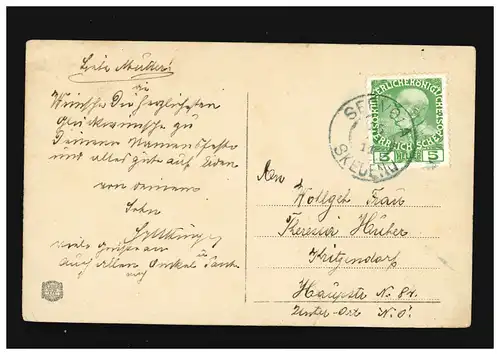 Liebe Mutter!
Wünsche Dir herzlichsten
Glückwünsche zu
Deinem Namensfeste
und alles gute auf Erden
von deinem
Sohn
viele Grüße an
auch allen Onkel u Tant
SERVOLA
SKEDENJ
KAISERLICHEKÖNIGLICHE ÖSTERREICHISCHE POST
5 HELLER 5
An
Wohlgeb Frau
Theresia Huber
Kritzendorf
Hauptstr N. 84.
Unter-Ost N.Ö.